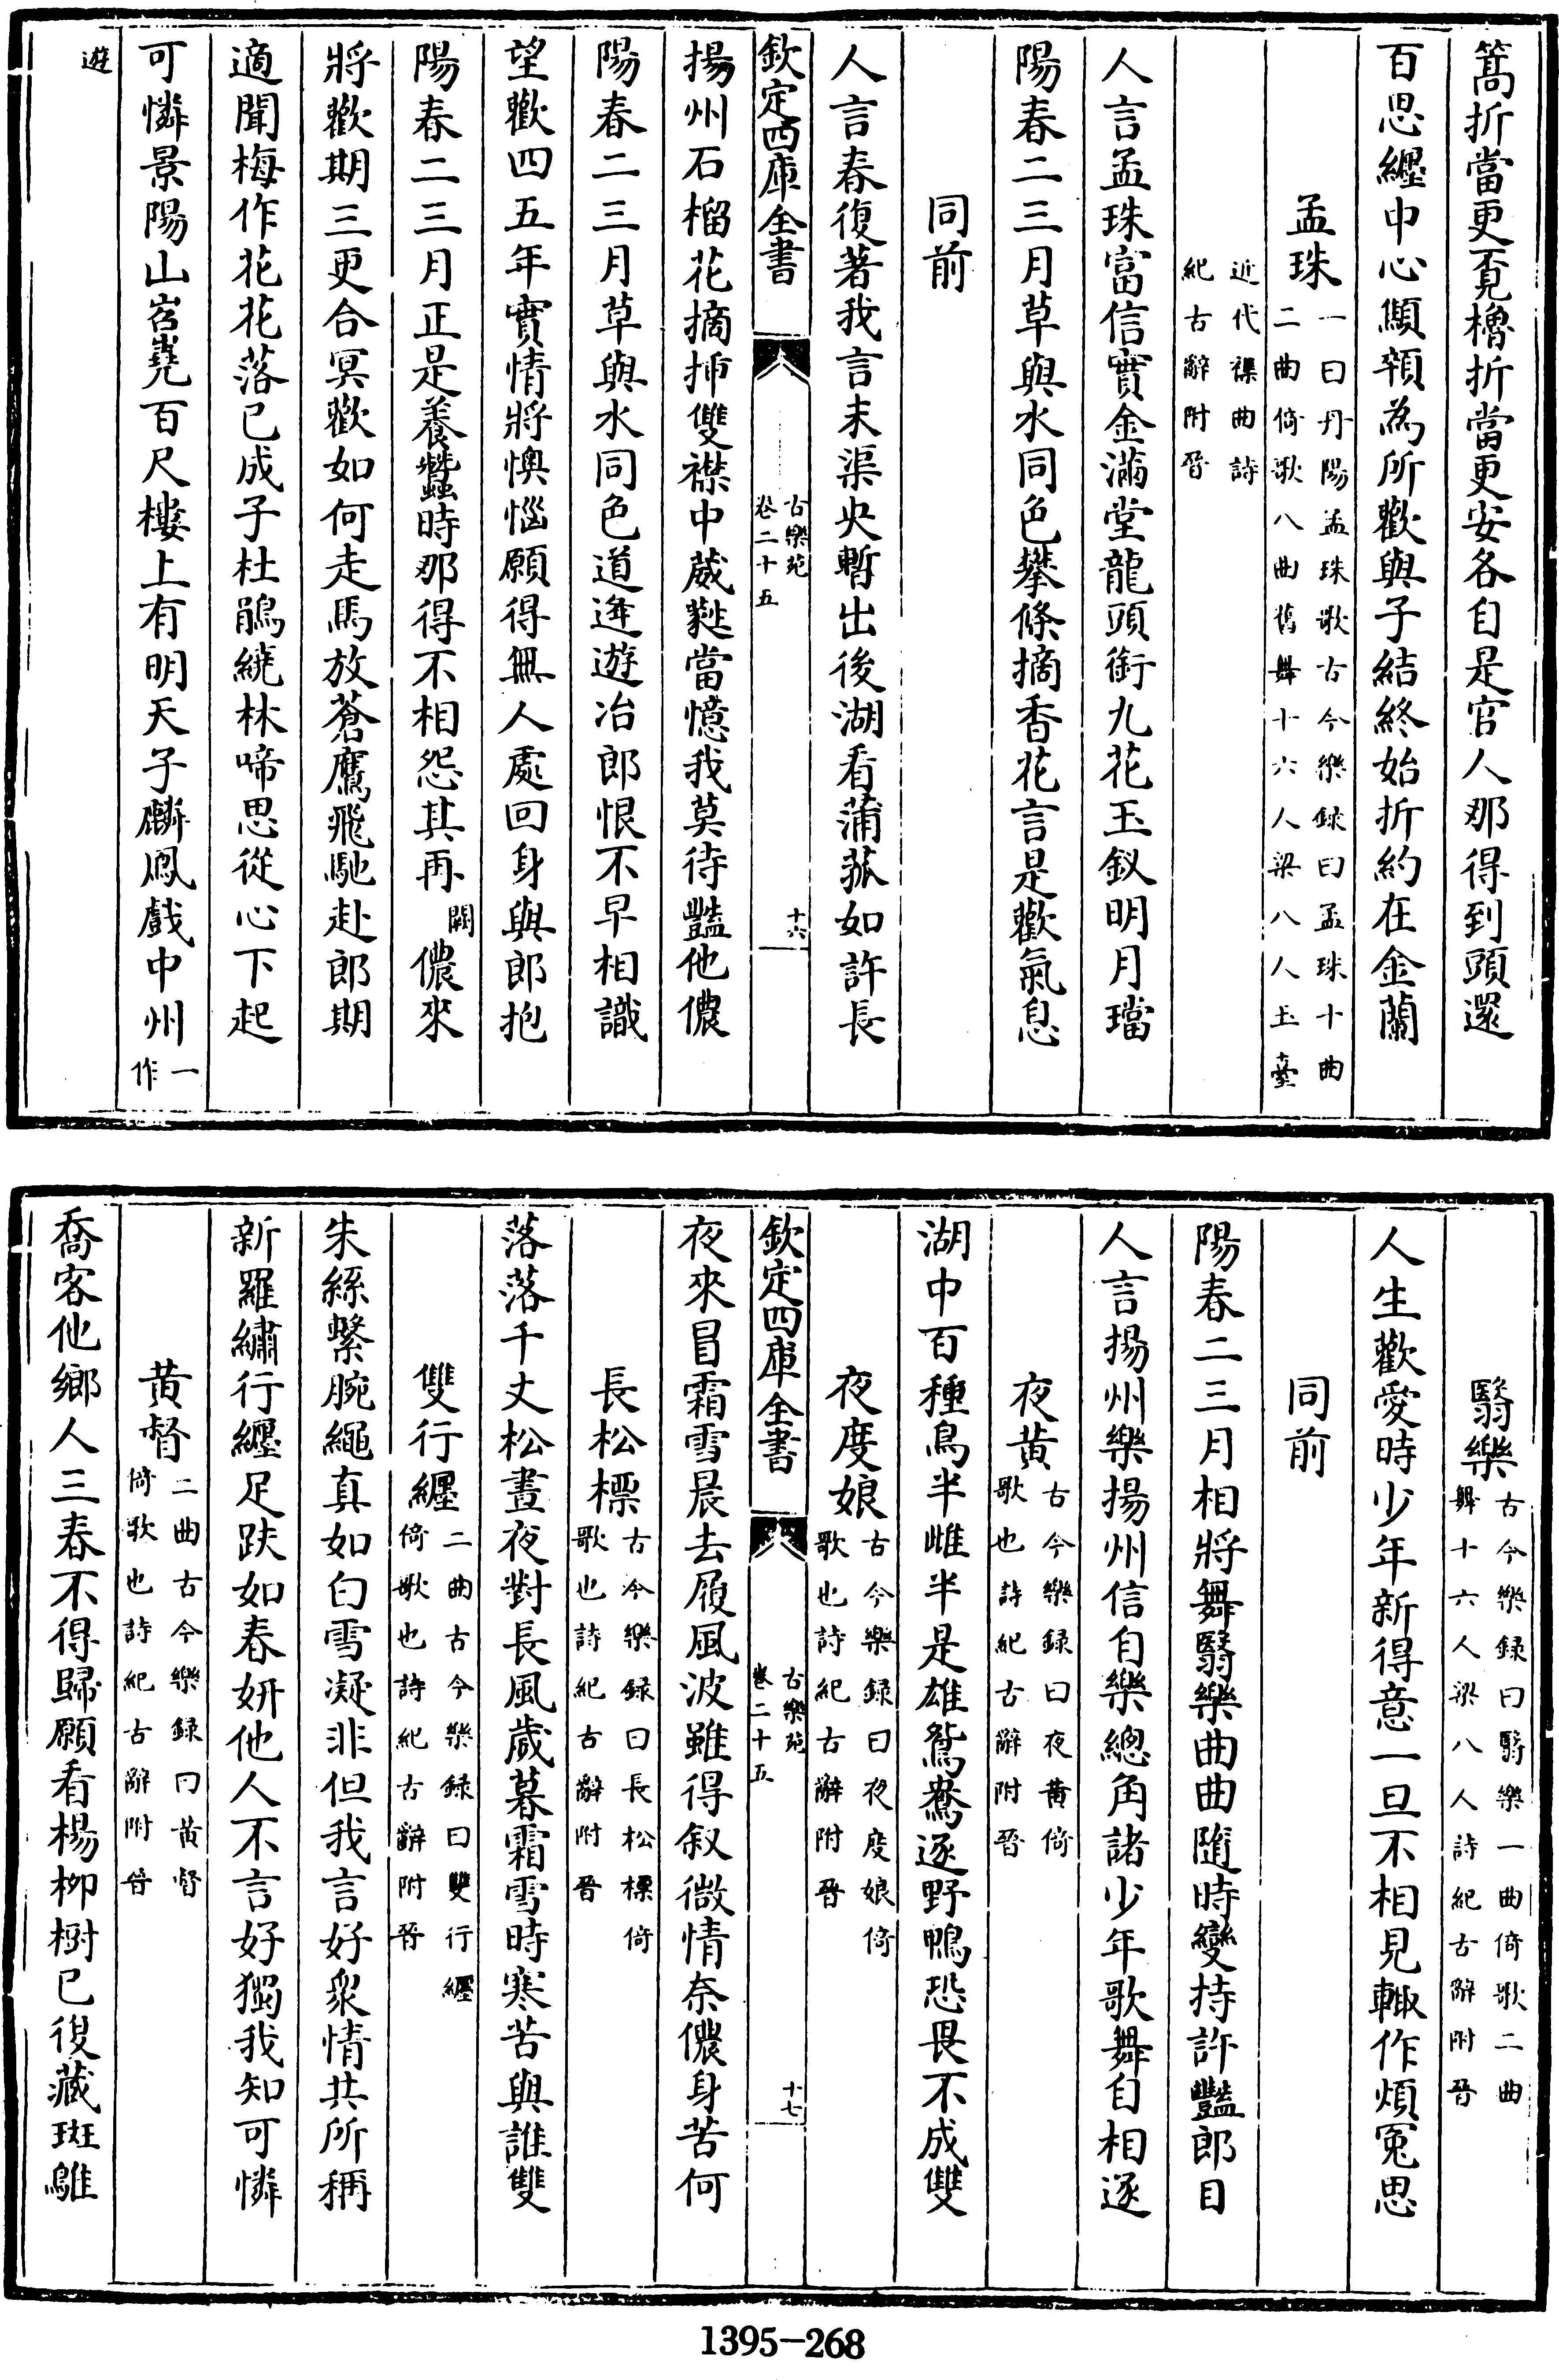 篙折當更覔櫓折當更安各自是官人那得到頭還
百思纒中心顦顇為所歡與子結終始折約在金蘭
孟珠一曰丹陽孟珠歌古今樂録曰孟珠十曲
二曲倚歌八曲舊舞十六人梁八人玉臺
近代襍曲詩
紀古辭附晉
人言孟珠富信實金滿堂龍頭銜九花玉釵明月璫
陽春二三月草與水同色攀條摘香花言是歡氣息
同前
人言春復著我言未渠央暫出後湖看蒲菰如許長
欽定四庫全書
古樂苑
卷二十五
十六
揚州石榴花摘揷雙襟中葳蕤當憶我莫待豔他儂
陽春二三月草與水同色道逢遊冶郎恨不早相識
望歡四五年實情將懊惱願得無人處回身與郎抱
陽春二三月正是養蠶時那得不相怨其再闕儂來
將歡期三更合冥歡如何走馬放蒼鷹飛馳赴郎期
適聞梅作花花落已成子杜鵑繞林啼思從心下起
可憐景陽山岧嶤百尺樓上有明天子麟鳳戲中州一
作
遊
翳樂古今樂録曰翳樂一曲倚歌二曲
舞十六人梁八人詩紀古辭附晉
人生歡愛時少年新得意一旦不相見輙作煩寃思
同前
陽春二三月相將舞翳樂曲曲隨時變持許豔郎目
人言揚州樂揚州信自樂總角諸少年歌舞自相逐
夜黃古今樂録曰夜黃倚
歌也詩紀古辭附晉
湖中百種鳥半雌半是雄鴛鴦逐野鴨恐畏不成雙
夜度娘古今樂録曰夜度娘倚
歌也詩紀古辭附晉
欽定四庫全書
古樂苑
卷二十五
十七
夜來冒霜雪晨去履風波雖得叙微情奈儂身苦何
長松標古今樂録曰長松標倚
歌也詩紀古辭附晉
落落千丈松晝夜對長風歲暮霜雪時寒苦與誰雙
雙行纒二曲古今樂録曰雙行纒
倚歌也詩紀古辭附晉
朱絲繫腕繩真如白雪凝非但我言好衆情共所稱
新羅繡行纒足趺如春妍他人不言好獨我知可憐
黃督二曲古今樂録曰黃督
倚歌也詩紀古辭附晉
喬客他鄉人三春不得歸願看楊柳樹已復藏斑鵻
1395-268